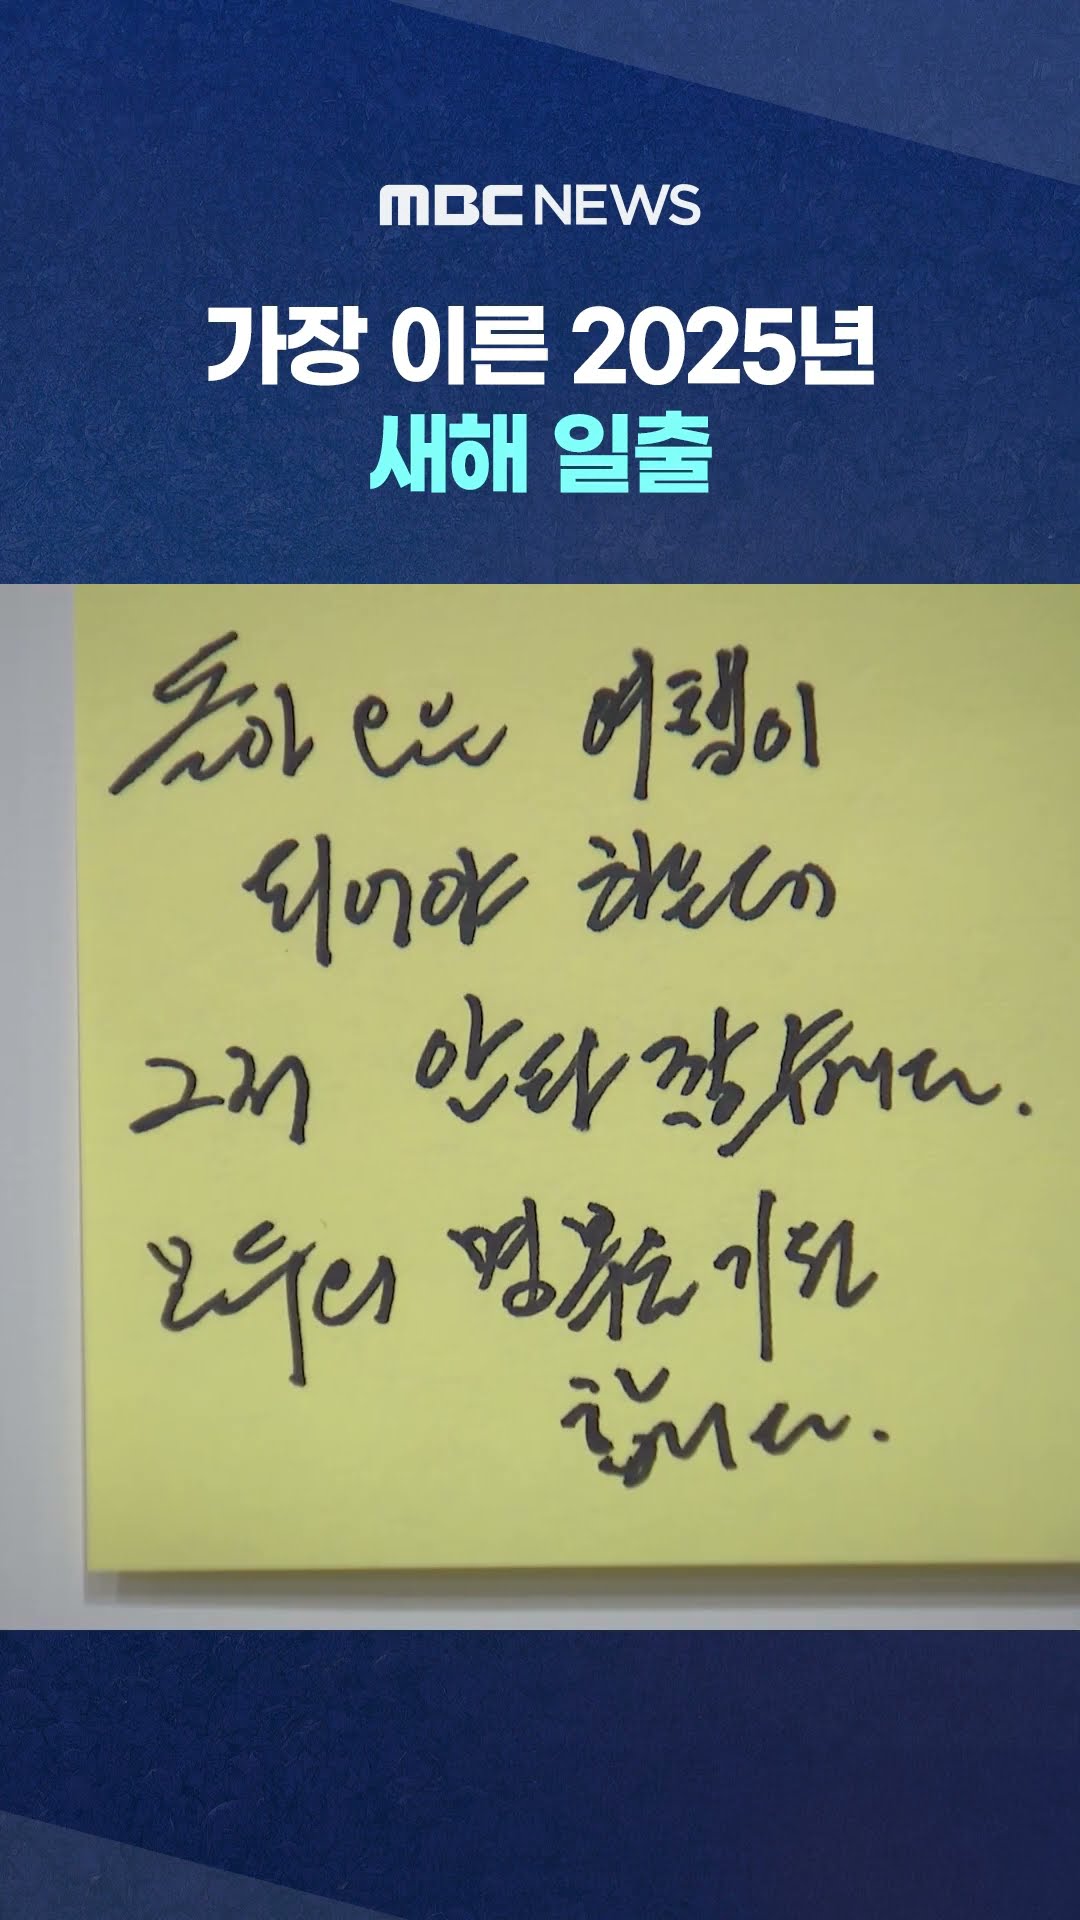 MBC NEWS
가장 이른 2025년
새해 일출
돌아오는 여행이
되어야 하는데
그저 안타깝습니다.
모두의 명복을 기원
합니다.